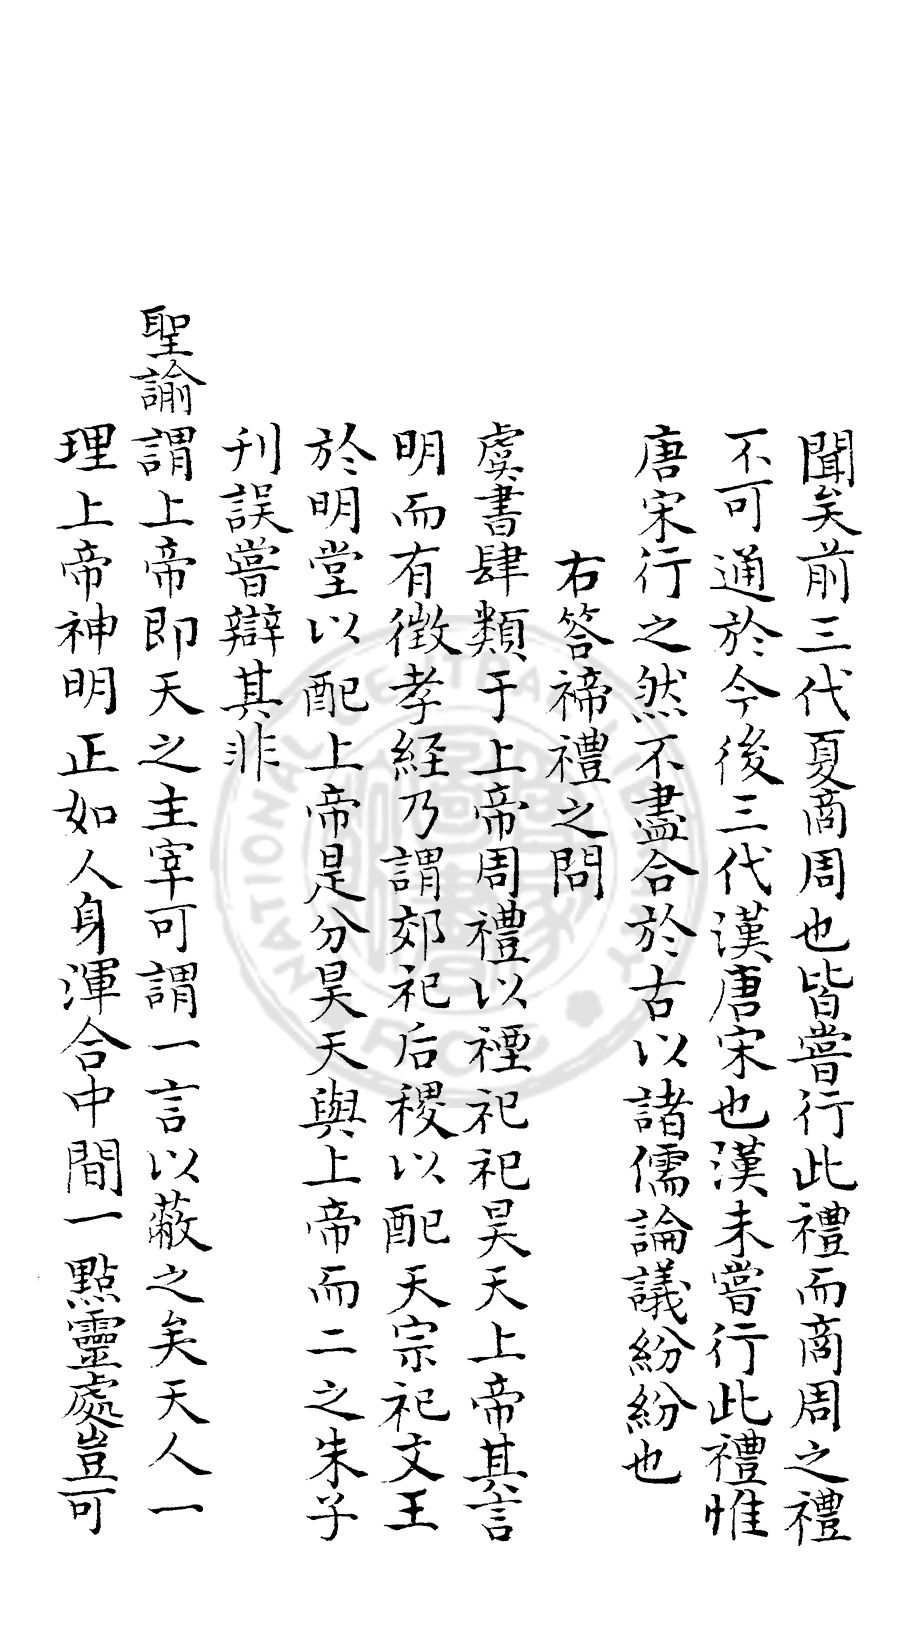 聞矣前三代夏商周也皆嘗行此禮而商周之禮
不可通於今後三代漢唐宋也漢未嘗行此禮惟
唐宋行之然不盡合於古以諸儒論議紛紛也
右答禘禮之問
虞書肆類于上帝周禮以禋祀祀昊天上帝其言
明而有徵孝經乃謂郊祀后稷以配天宗祀文王
於明堂以配上帝是分昊天與上帝而二之朱子
刊誤嘗辯其非
聖諭謂上帝即天之主宰可謂一言以蔽之矣天人一
理上帝神明正如人身渾合中間一點靈處豈可